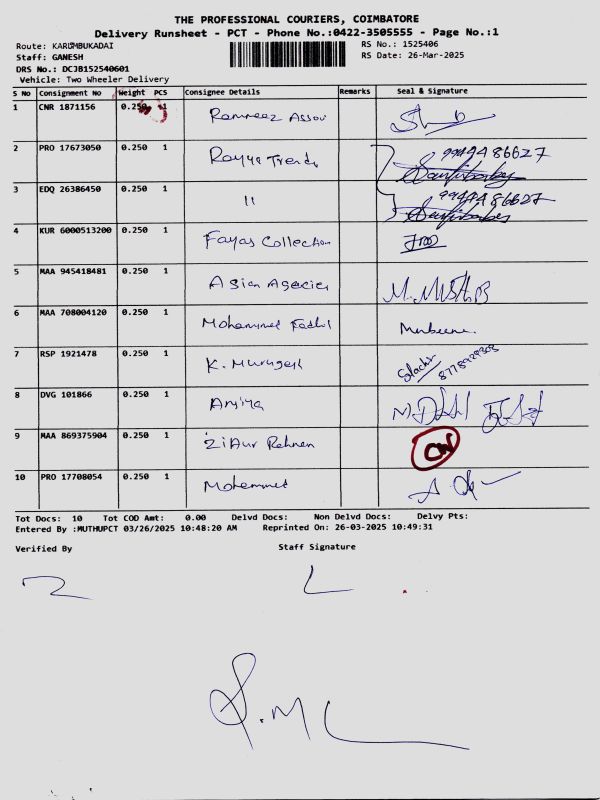 THE PROFESSIONAL COURIERS, COIMBATORE
Delivery Runsheet - PCT - Phone No.:0422-3505555 - Page No.:1
Route: KARUMBUKADAI RS No.: 1525406
Staff: GANESH RS Date: 26-Mar-2025
DRS No.: DCJB152540601
Vehicle: Two Wheeler Delivery
S No Consignment No Weight PCS Consignee Details Remarks Seal & Signature
1 CNR 1871156 0.250 1 Rameez Assou
2 PRO 17673050 0.250 1 Rayya Trends 9949486627
3 EDQ 26386450 0.250 1 11 9949486627
4 KUR 6000513200 0.250 1 Fayas Collection
5 MAA 945418481 0.250 1 Asian Agacies
6 MAA 708004120 0.250 1 Mohammed Fadhil
7 RSP 1921478 0.250 1 K. Murugesh
8 DVG 101866 0.250 1
9 MAA 869375904 0.250 1 ZiAur Rehman
10 PRO 17708054 0.250 1 Mohammed
Tot Docs: 10 Tot COD Amt: 0.00 Delvd Docs: Non Delvd Docs: Delvy Pts:
Entered By :MUTHUPCT 03/26/2025 10:48:20 AM Reprinted On: 26-03-2025 10:49:31
Verified By Staff Signature